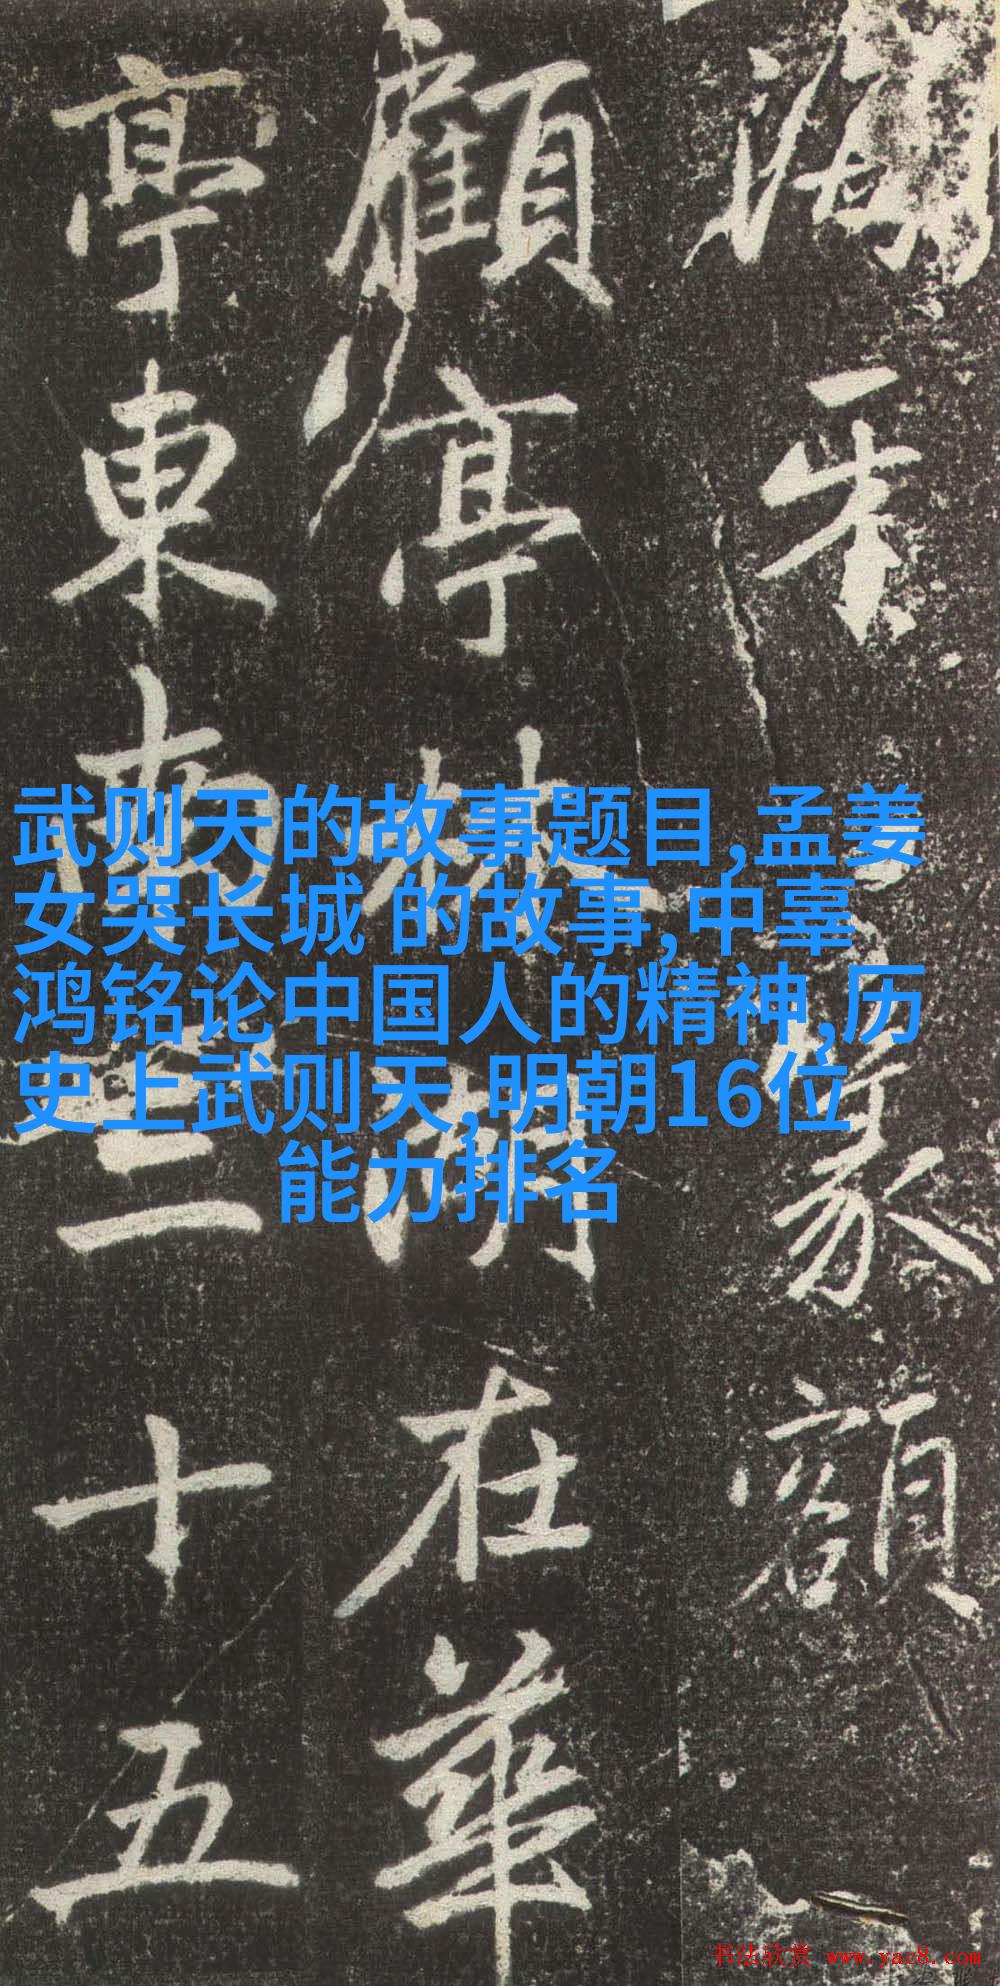 篆額
顧亭林湖在華
亭東南三十五
武则天的故事题目,孟姜
女哭长城 的故事,中辜
鸿铭论中国人的精神,历
史上武则天,明朝16位
能力排名
书法欣赏 www.yac8.com